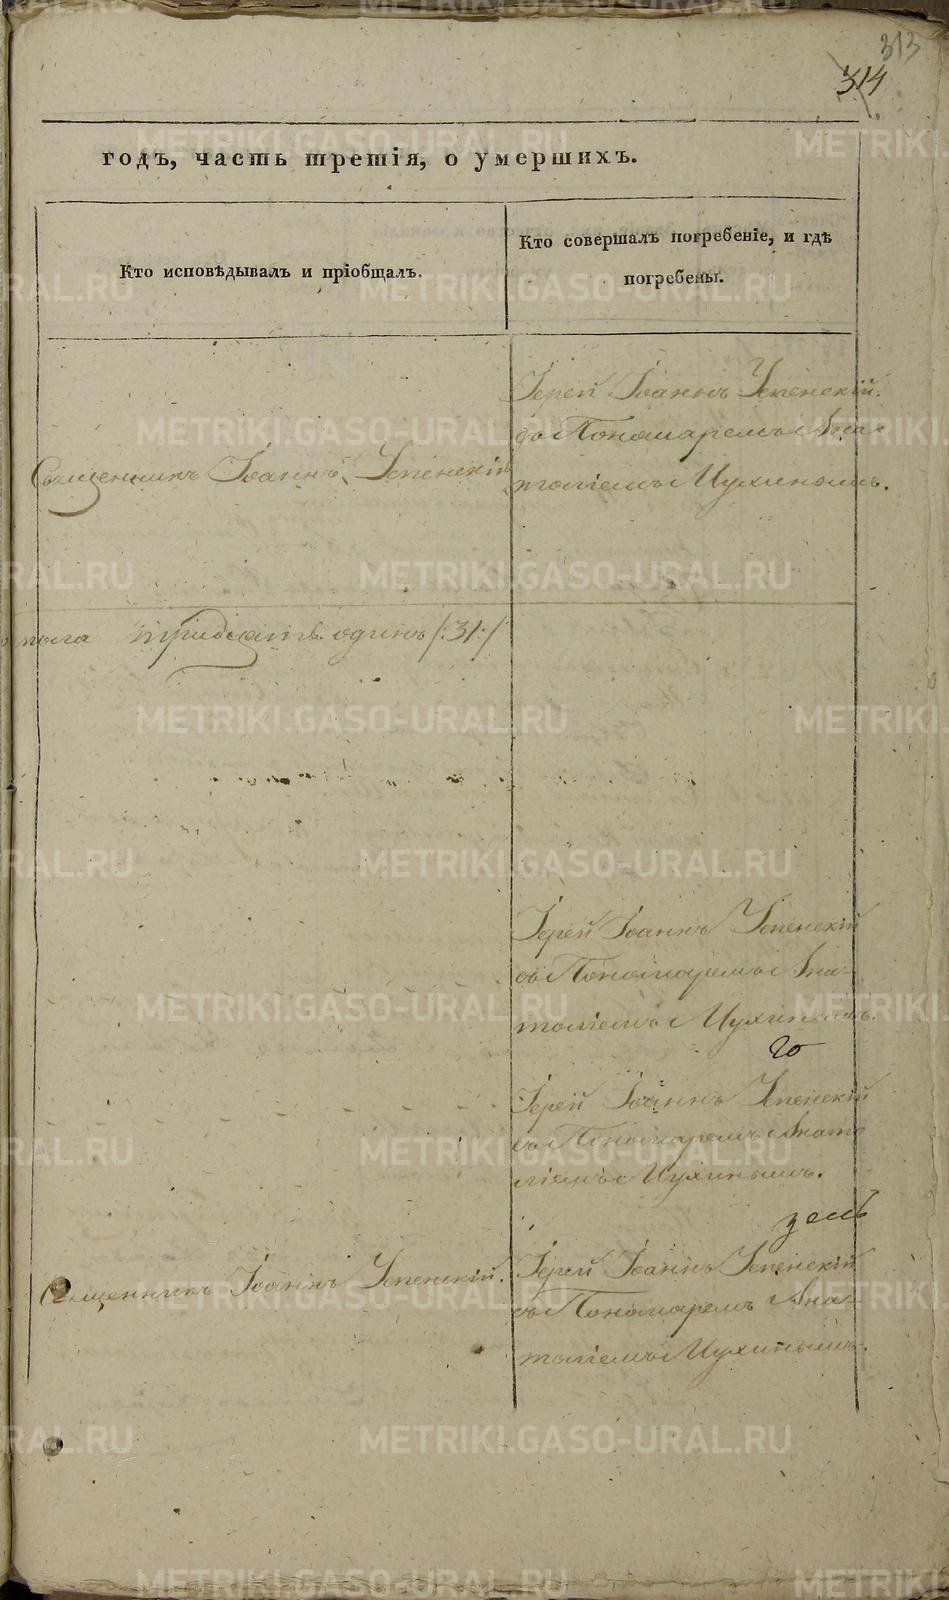 313
314
годъ, часть третія, о умершихъ.
Кто исповѣдывалъ и пріобщалъ.
Кто совершалъ погребеніе, и гдѣ
погребены.
Іерей Іоаннъ Успенскій
съ Пономаремъ Ана-
Священникъ Іоаннъ Успенскій
толіемъ Цухинымъ.
тридцать одинъ /:31:/
Іерей Іоаннъ Успенскій
съ Пономаремъ Ана-
толіемъ Цухинымъ.
го
Іерей Іоаннъ Успенскій
съ Пономаремъ Анато
ліемъ Цухинымъ.
Священникъ Іоаннъ Успенскій.
Іерей Іоаннъ Успенскій
съ Пономаремъ Ана-
толіемъ Цухинымъ.
METRIKI.GASO-URAL.RU